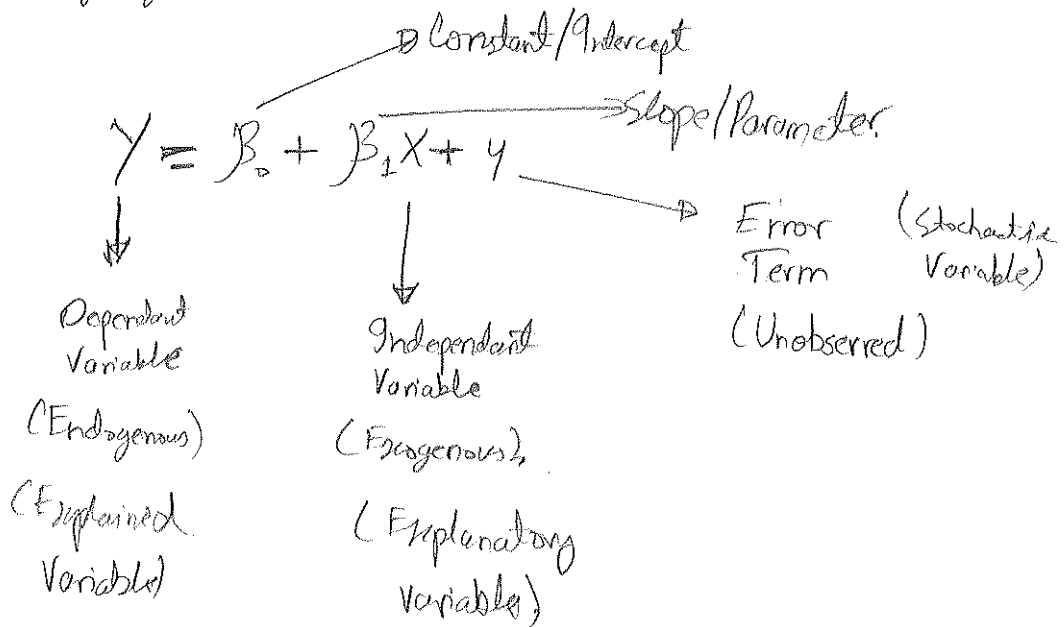 Constant/Intercept
Y = β₀ + β₁X + u
Slope/Parameter.
Error (Stochastic
Term Variable)
(Unobserved)
Dependant
Variable
(Endogenous)
(Explained
Variable)
Independant
Variable
(Exogenous)
(Explanatory
Variable)